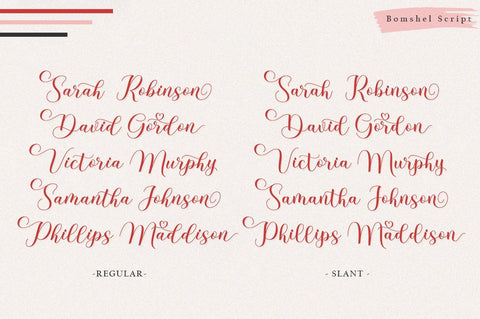 Bomshel Script
Sarah Robinson
David Gordon
Victoria Murphy
Samantha Johnson
Phillips Maddison
-REGULAR-
Sarah Robinson
David Gordon
Victoria Murphy
Samantha Johnson
Phillips Maddison
- SLANT -